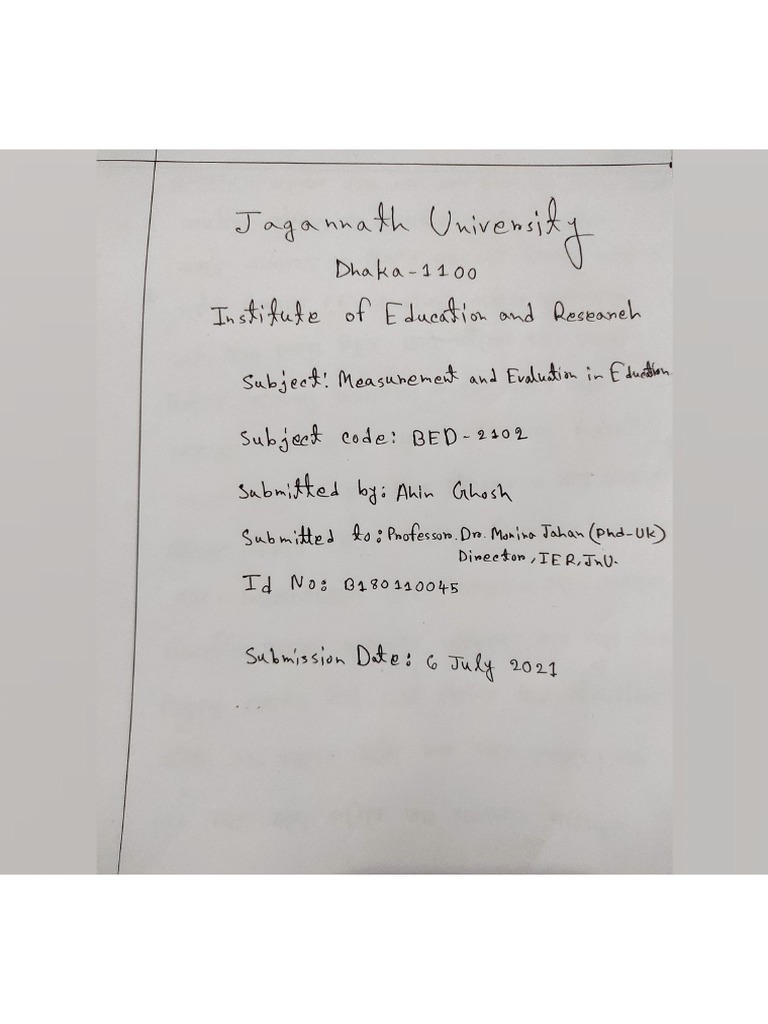 Jagannath University
Dhaka-1100
Institute of Education and Research
Subject: Measurement and Evaluation in Education
Subject code: BED-2102
Submitted by: Ahin Ghosh
Submitted to: Professor. Dr. Monira Jahan (Phd-Uk)
Director, IER, JnU.
Id No: B180110045
Submission Date: 6 July 2021
...